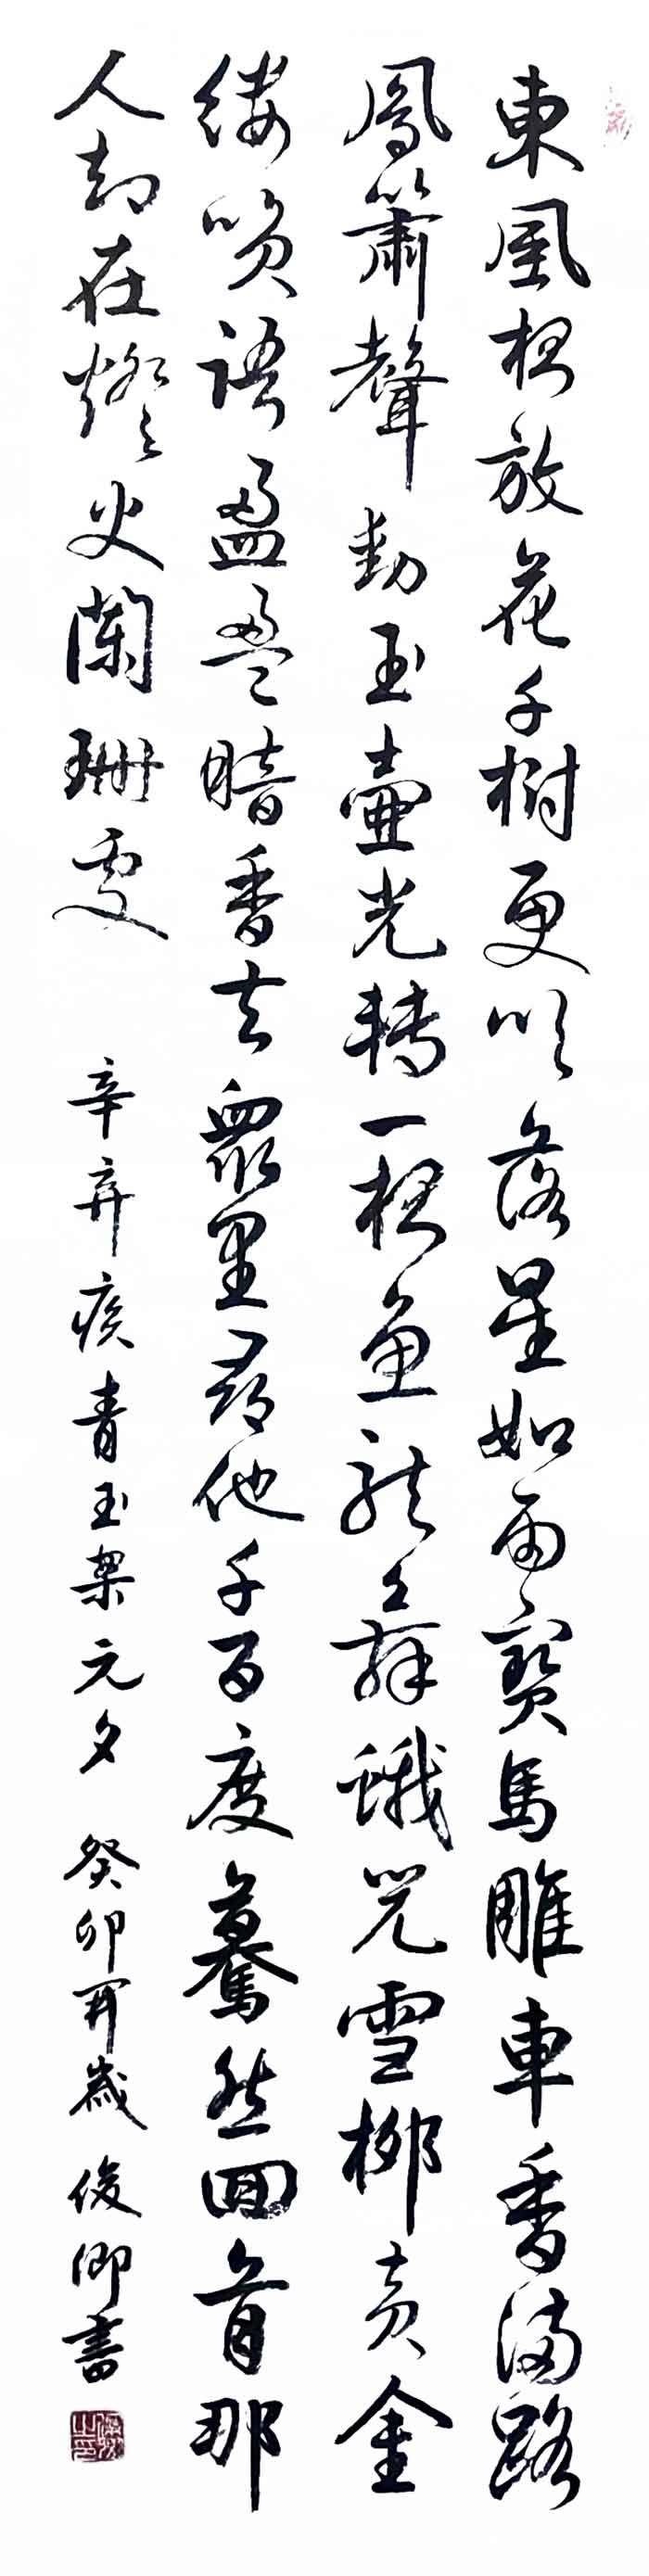 東風夜放花千樹更吹落星如雨寶馬雕車香滿路
鳳簫聲動玉壺光轉一夜魚龍舞蛾兒雪柳黃金
縷笑語盈盈暗香去眾里尋他千百度驀然回首那
人却在燈火闌珊處 辛弃疾青玉案元夕 癸卯開歲 俊卿書